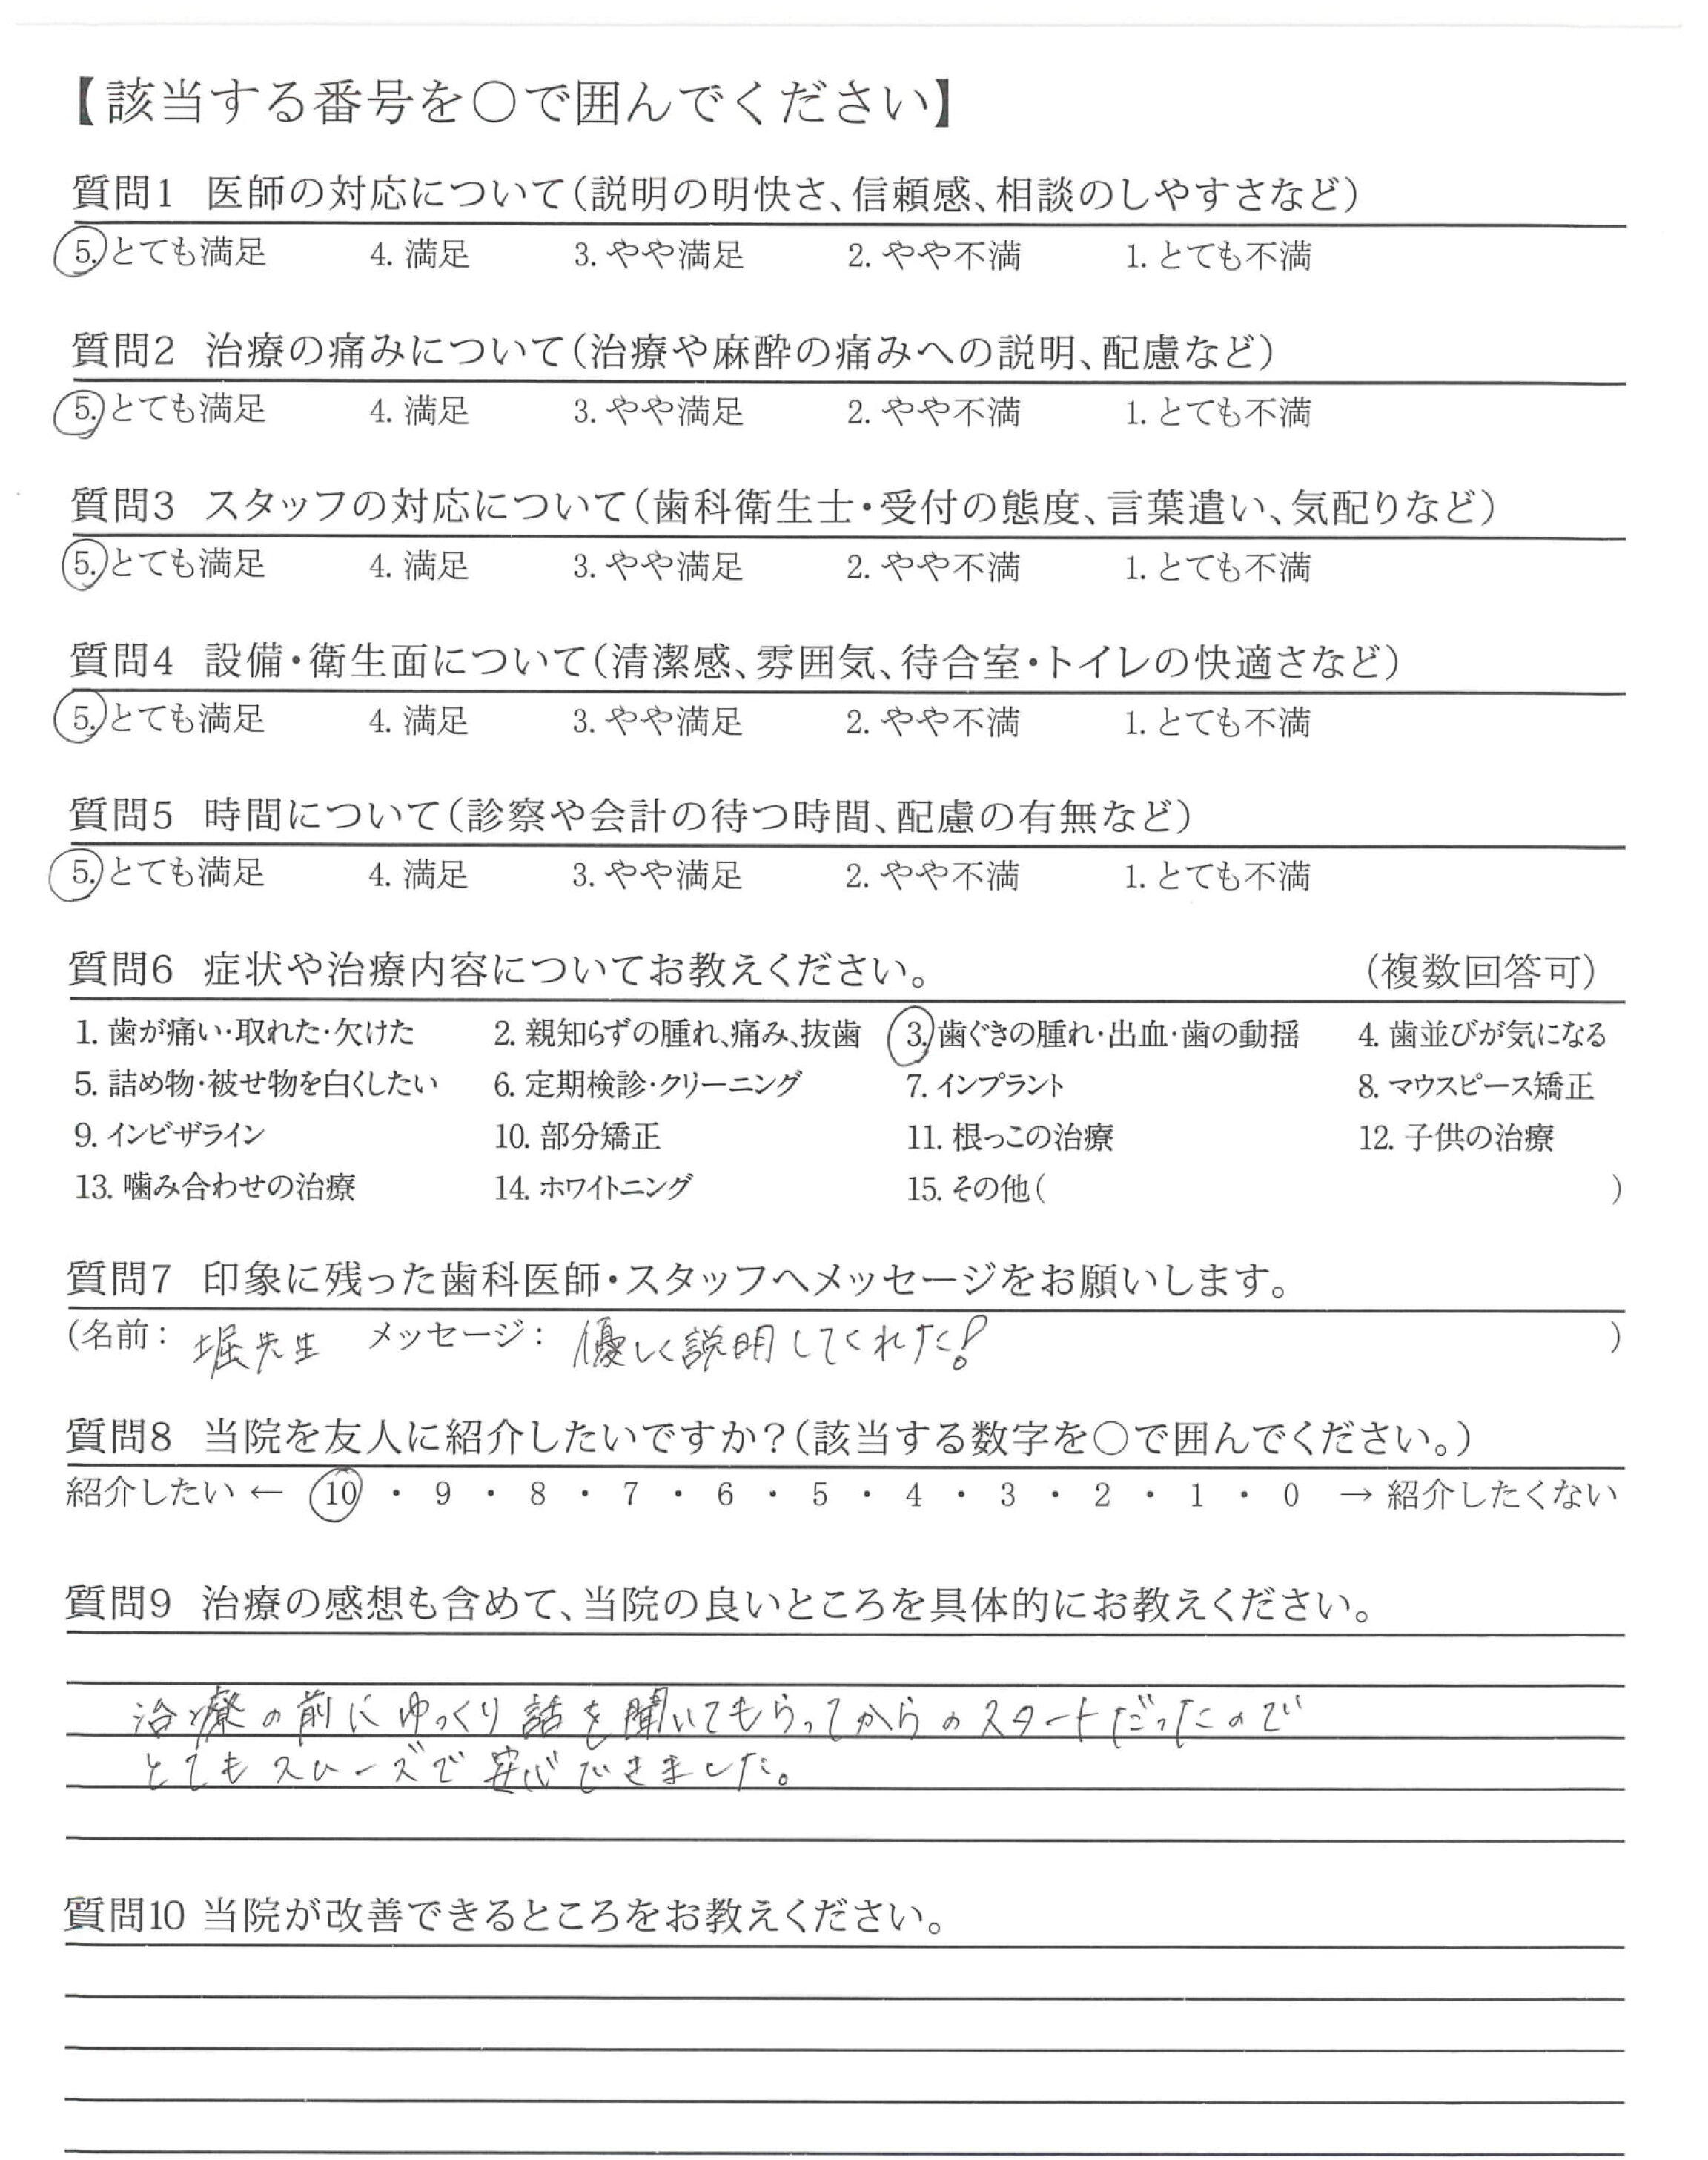 【該当する番号を○で囲んでください】
質問1 医師の対応について(説明の明快さ、信頼感、相談のしやすさなど)
5. とても満足 4. 満足 3. やや満足 2. やや不満 1. とても不満
質問2 治療の痛みについて(治療や麻酔の痛みへの説明、配慮など)
5. とても満足 4. 満足 3. やや満足 2. やや不満 1. とても不満
質問3 スタッフの対応について(歯科衛生士・受付の態度、言葉遣い、気配りなど)
5. とても満足 4. 満足 3. やや満足 2. やや不満 1. とても不満
質問4 設備・衛生面について(清潔感、雰囲気、待合室・トイレの快適さなど)
5. とても満足 4. 満足 3. やや満足 2. やや不満 1. とても不満
質問5 時間について(診察や会計の待つ時間、配慮の有無など)
5. とても満足 4. 満足 3. やや満足 2. やや不満 1. とても不満
質問6 症状や治療内容についてお教えください。 (複数回答可)
1. 歯が痛い・取れた・欠けた 2. 親知らずの腫れ、痛み、抜歯 3. 歯ぐきの腫れ・出血・歯の動揺 4. 歯並びが気になる
5. 詰め物・被せ物を白くしたい 6. 定期検診・クリーニング 7. インプラント 8. マウスピース矯正
9. インビザライン 10. 部分矯正 11. 根っこの治療 12. 子供の治療
13. 噛み合わせの治療 14. ホワイトニング 15. その他( )
質問7 印象に残った歯科医師・スタッフへメッセージをお願いします。
(名前: 堀先生 メッセージ: 優しく説明してくれた! )
質問8 当院を友人に紹介したいですか?(該当する数字を○で囲んでください。)
紹介したい ← 10 ・ 9 ・ 8 ・ 7 ・ 6 ・ 5 ・ 4 ・ 3 ・ 2 ・ 1 ・ 0 → 紹介したくない
質問9 治療の感想も含めて、当院の良いところを具体的にお教えください。
治療の前にゆっくり話を聞いてもらってからのスタートだったので
とてもスムーズで安心できました。
質問10 当院が改善できるところをお教えください。